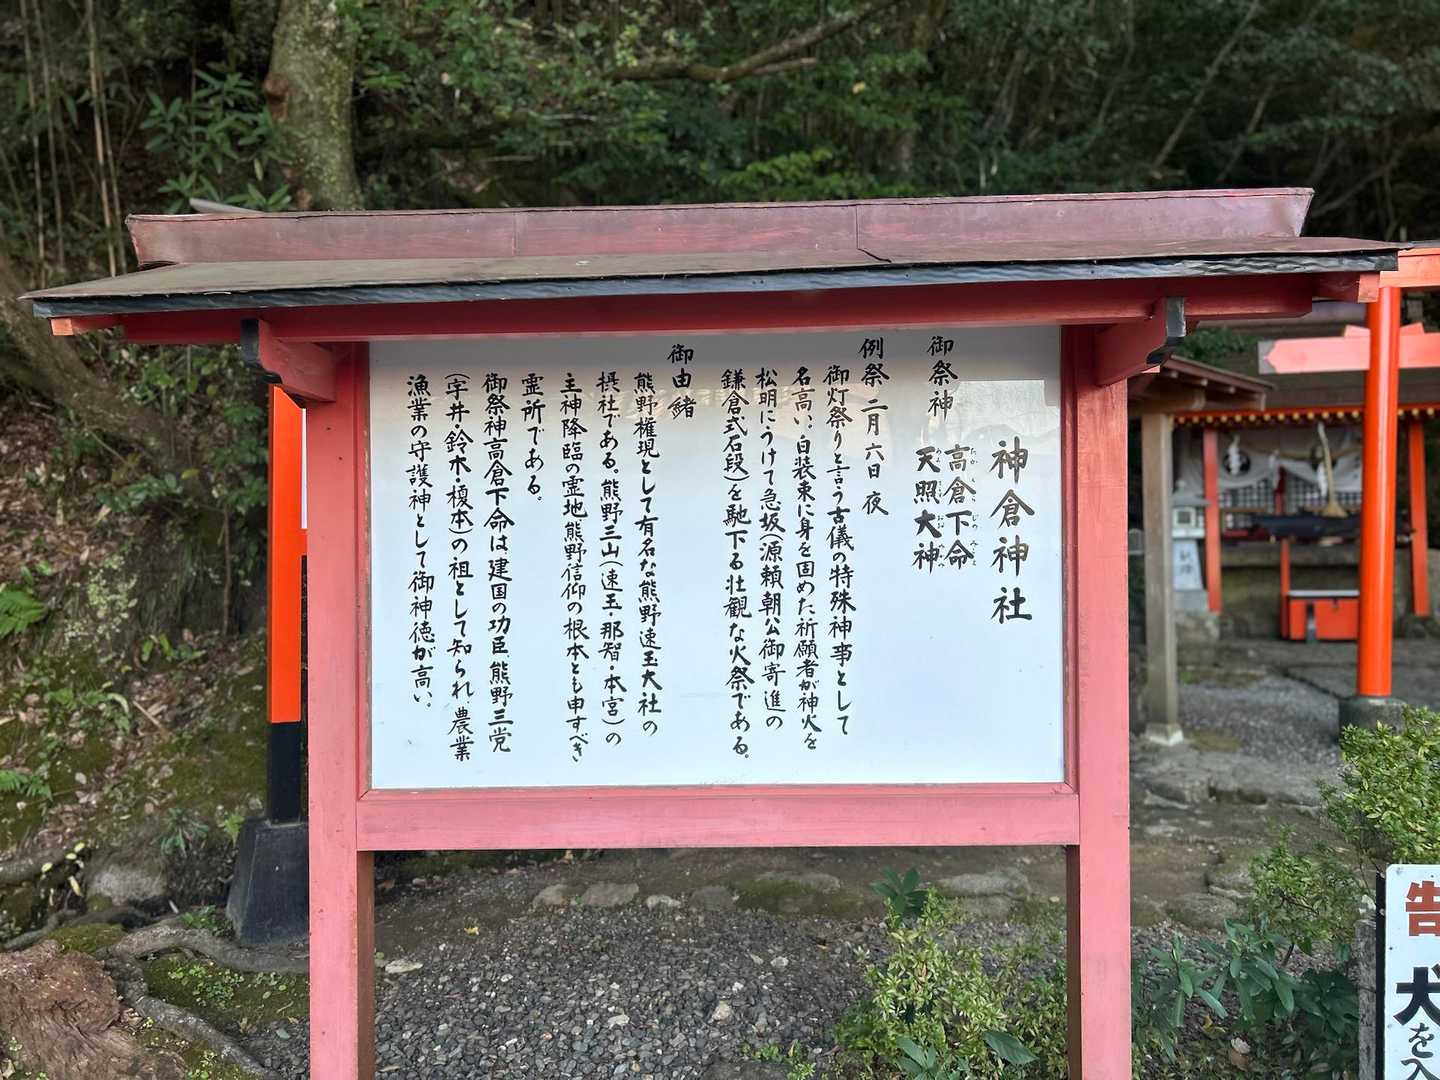 神倉神社
御祭神 高倉下命
天照大神
例祭 二月六日 夜
御灯祭りと言う古儀の特殊神事として
名高い、白装束に身を固めた祈願者が神火を
松明にうけて急坂(源頼朝公御寄進の
鎌倉式石段)を馳下る壮観な火祭である。
御由緒
熊野権現として有名な熊野速玉大社の
摂社である。熊野三山(速玉・那智・本宮)の
主神降臨の霊地熊野信仰の根本とも申すべき
霊所である。
御祭神高倉下命は建国の功臣、熊野三党
(宇井・鈴木・榎本)の祖として知られ、農業
漁業の守護神として御神徳が高い。
告
犬を入